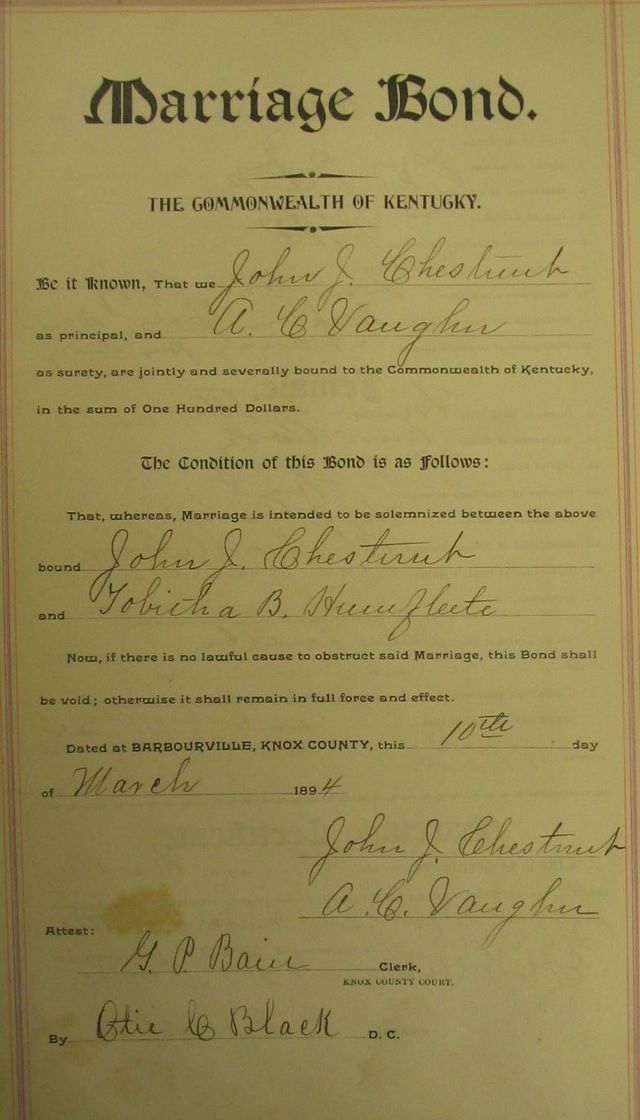 Marriage Bond.
THE COMMONWEALTH OF KENTUCKY.
Be it Known, That we John J. Chestnut
as principal, and A. C Vaughn
as surety, are jointly and severally bound to the Commonwealth of Kentucky,
in the sum of One Hundred Dollars.
The Condition of this Bond is as Follows:
That, whereas, Marriage is intended to be solemnized between the above
bound John J. Chestnut
and Tobitha B. Humfleete
Now, if there is no lawful cause to obstruct said Marriage, this Bond shall
be void; otherwise it shall remain in full force and effect.
Dated at BARBOURVILLE, KNOX COUNTY, this 10th day
of March 1894
John J. Chestnut
A. C. Vaughn
Attest:
G. P. Bain Clerk,
KNOX COUNTY COURT.
By Otie C Black D. C.